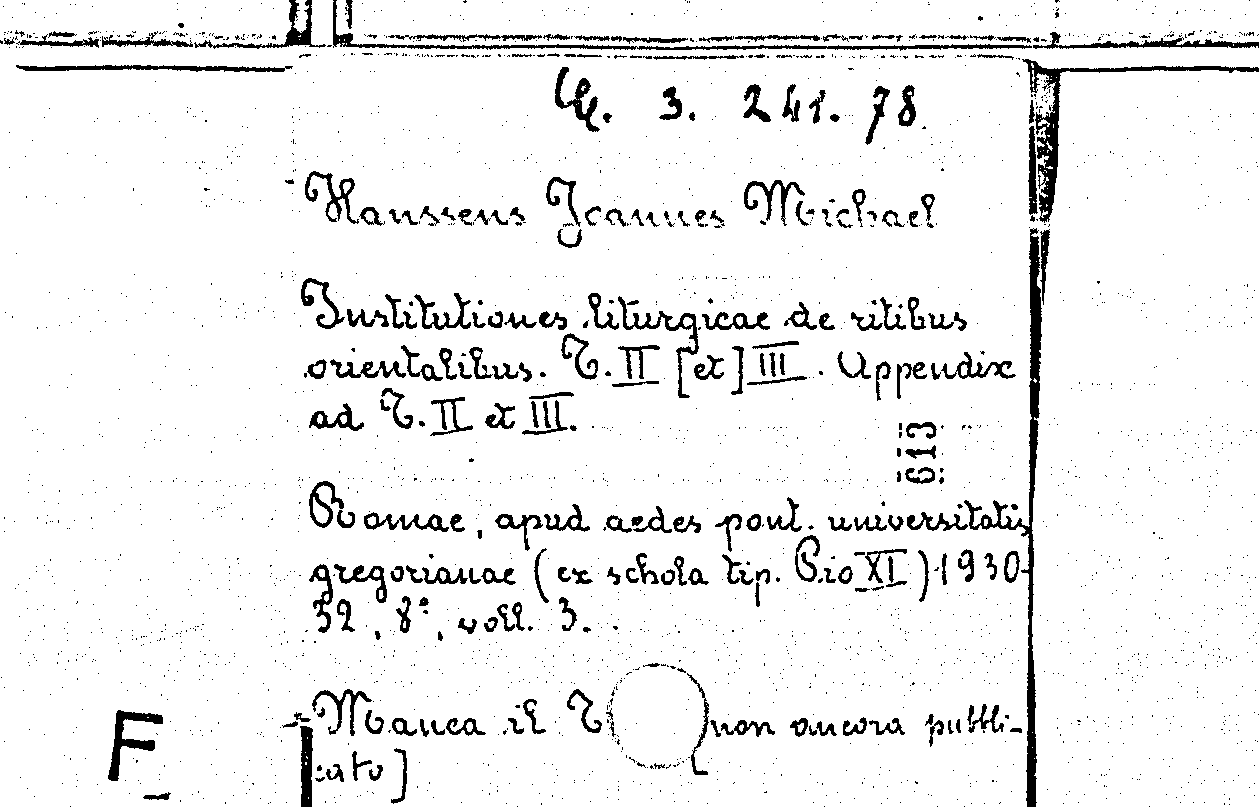 3. 241. 78
Hanssens Joannes Michael
Institutiones liturgicae de ritibus
orientalibus. T. II [et] III. Appendix
ad T. II et III.
613
Romae, apud aedes pont. universitatis
gregorianae (ex schola tip. Pio XI) 1930-
32, 8°, voll. 3.
Manca il T non ancora pubbli-
cato]
F